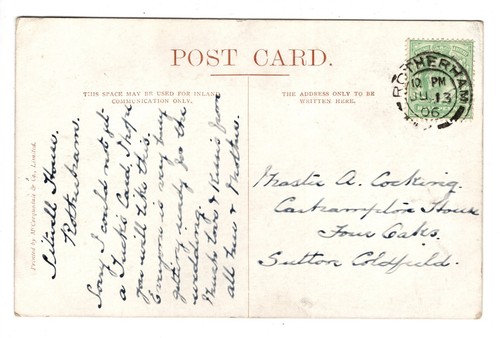 POST CARD.
THIS SPACE MAY BE USED FOR INLAND
COMMUNICATION ONLY.
THE ADDRESS ONLY TO BE
WRITTEN HERE.
ROTHERHAM
12 PM
JU 13
06
Printed by McCorquodale & Co., Limited.
House.
Rotherham.
Sorry I could not get
a Card I hope
you will like this.
Everyone is very busy
getting ready for the
wedding.
Much love & Kisses from
all here & Mother.
Master A. Cocking.
Carhampton House
Four Oaks.
Sutton Coldfield.